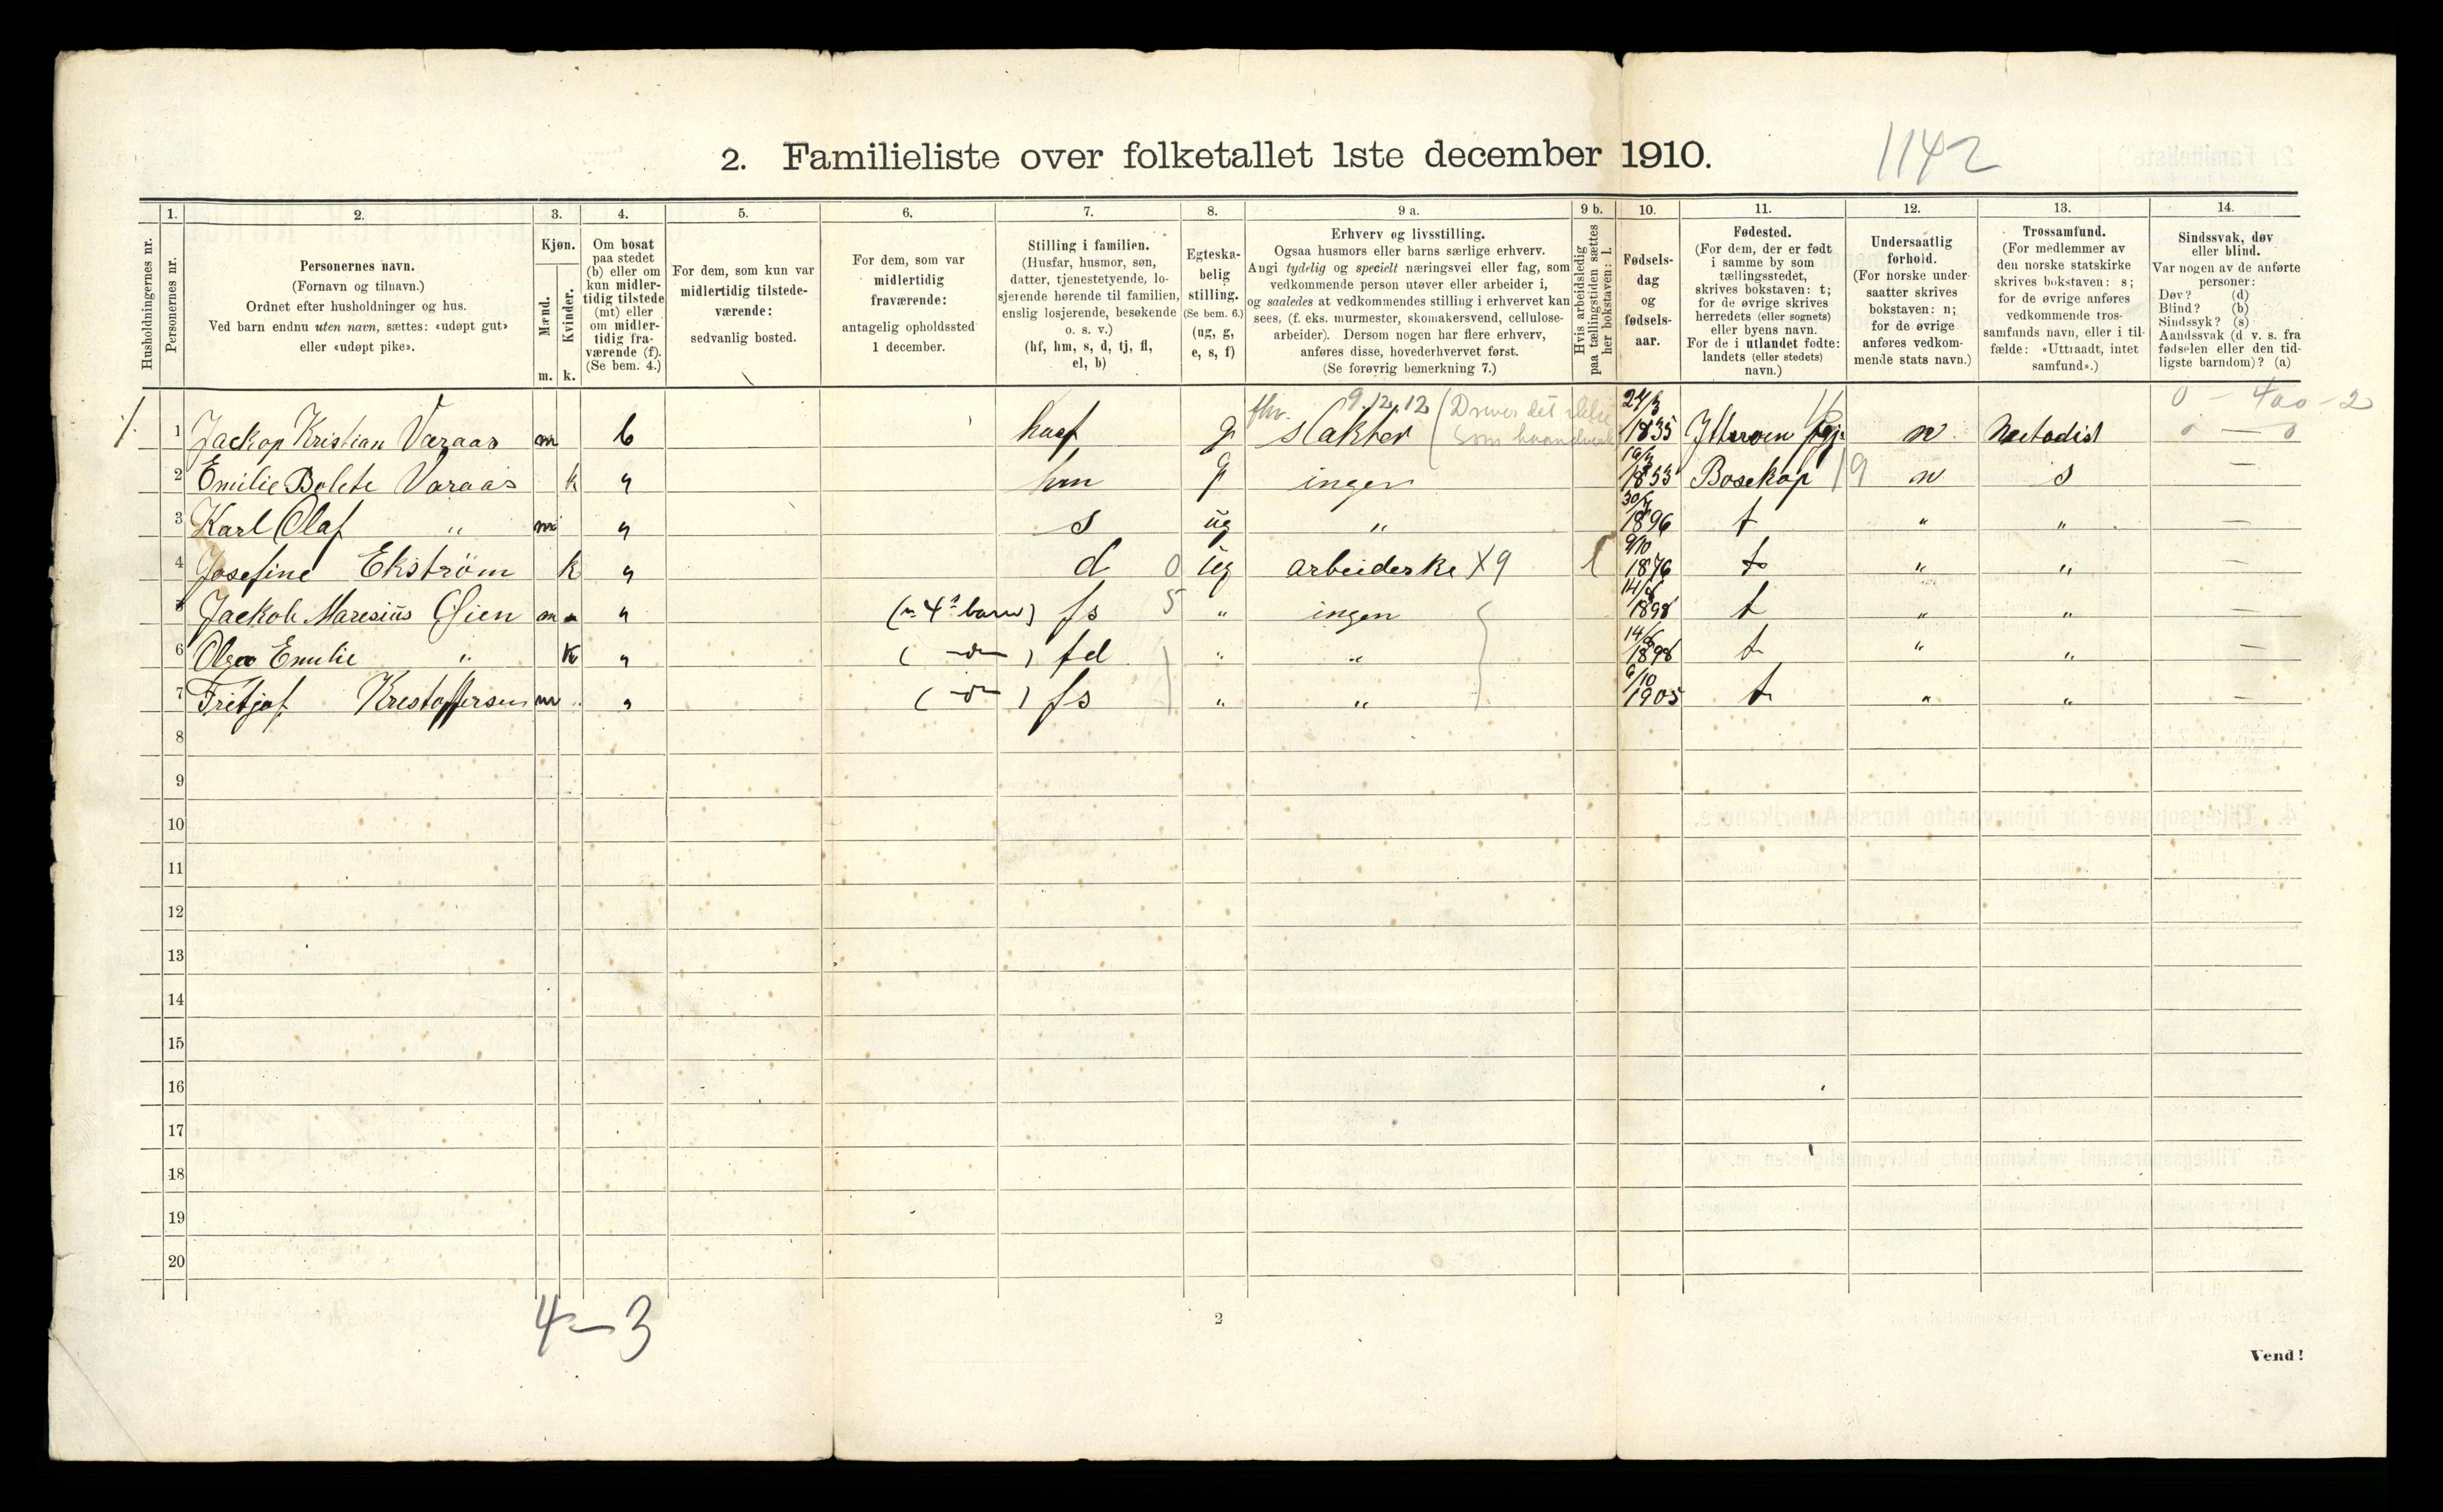 2. Familieliste over folketallet 1ste december 1910.
1142
1. 2. 3. 4. 5. 6. 7. 8. 9 a. 9 b. 10. 11. 12. 13. 14.
Husholdningernes nr.
Personernes nr.
Personernes navn.
(Fornavn og tilnavn.)
Ordnet efter husholdninger og hus.
Ved barn endnu uten navn, sættes: «udøpt gut»
eller «udøpt pike».
Kjøn.
Mænd.
Kvinder.
m. k.
Om bosat
paa stedet
(b) eller om
kun midler-
tidig tilstede
(mt) eller
om midler-
tidig fra-
værende (f).
(Se bem. 4.)
For dem, som kun var
midlertidig tilstede-
værende:
sedvanlig bosted.
For dem, som var
midlertidig
fraværende:
antagelig opholdssted
1 december.
Stilling i familien.
(Husfar, husmor, søn,
datter, tjenestetyende, lo-
sjerende hørende til familien,
enslig losjerende, besøkende
o. s. v.)
(hf, hm, s, d, tj, fl,
el, b)
Egteska-
belig
stilling.
(Se bem. 6.)
(ug, g,
e, s, f)
Erhverv og livsstilling.
Ogsaa husmors eller barns særlige erhverv.
Angi tydelig og specielt næringsvei eller fag, som
vedkommende person utøver eller arbeider i,
og saaledes at vedkommendes stilling i erhvervet kan
sees, (f. eks. murmester, skomakersvend, cellulose-
arbeider). Dersom nogen har flere erhverv,
anføres disse, hovederhvervet først.
(Se forøvrig bemerkning 7.)
Hvis arbeidsledig
paa tællingstiden sættes
her bokstaven: l.
Fødsels-
dag
og
fødsels-
aar.
Fødested.
(For dem, der er født
i samme by som
tællingsstedet,
skrives bokstaven: t;
for de øvrige skrives
herredets (eller sognets)
eller byens navn.
For de i utlandet fødte:
landets (eller stedets)
navn.)
Undersaatlig
forhold.
(For norske under-
saatter skrives
bokstaven: n;
for de øvrige
anføres vedkom-
mende stats navn.)
Trossamfund.
(For medlemmer av
den norske statskirke
skrives bokstaven: s;
for de øvrige anføres
vedkommende tros-
samfunds navn, eller i til-
fælde: «Uttraadt, intet
samfund».)
Sindssvak, døv
eller blind.
Var nogen av de anførte
personer:
Døv? (d)
Blind? (b)
Sindssyk? (s)
Aandssvak (d. v. s. fra
fødselen eller den tid-
ligste barndom)? (a)
fhv. 9.12.12 (Driver det ikke 24/3 16 0 - 400 - 2
1 Jackop Kristian Varaas m b huf g slakter som haandverk 1835 Ytterøen n Metodist 0 — 0
2 Emilie Bolete Varaas k " hm g ingen 1853 Bosekop 19 n s —
3 Karl Olaf " m " s ug " 30/ 1896 t " " —
4 Josefine Ekstrøm k " d 0 ug arbeiderke X9 l 9/10 1876 t " " —
5 Jackob Maresius Olsen m " (n 4s barn) fs 5 " ingen 14/8 1898 t " " —
6 Olga Emilie " k " ( -"- ) fd " " 14/8 1898 t " " —
7 Fritjof Krestoffersen m " ( -"- ) fs " " 6/10 1905 t " " —
8
9
10
11
12
13
14
15
16
17
18
19
20
4 - 3
2
Vend!